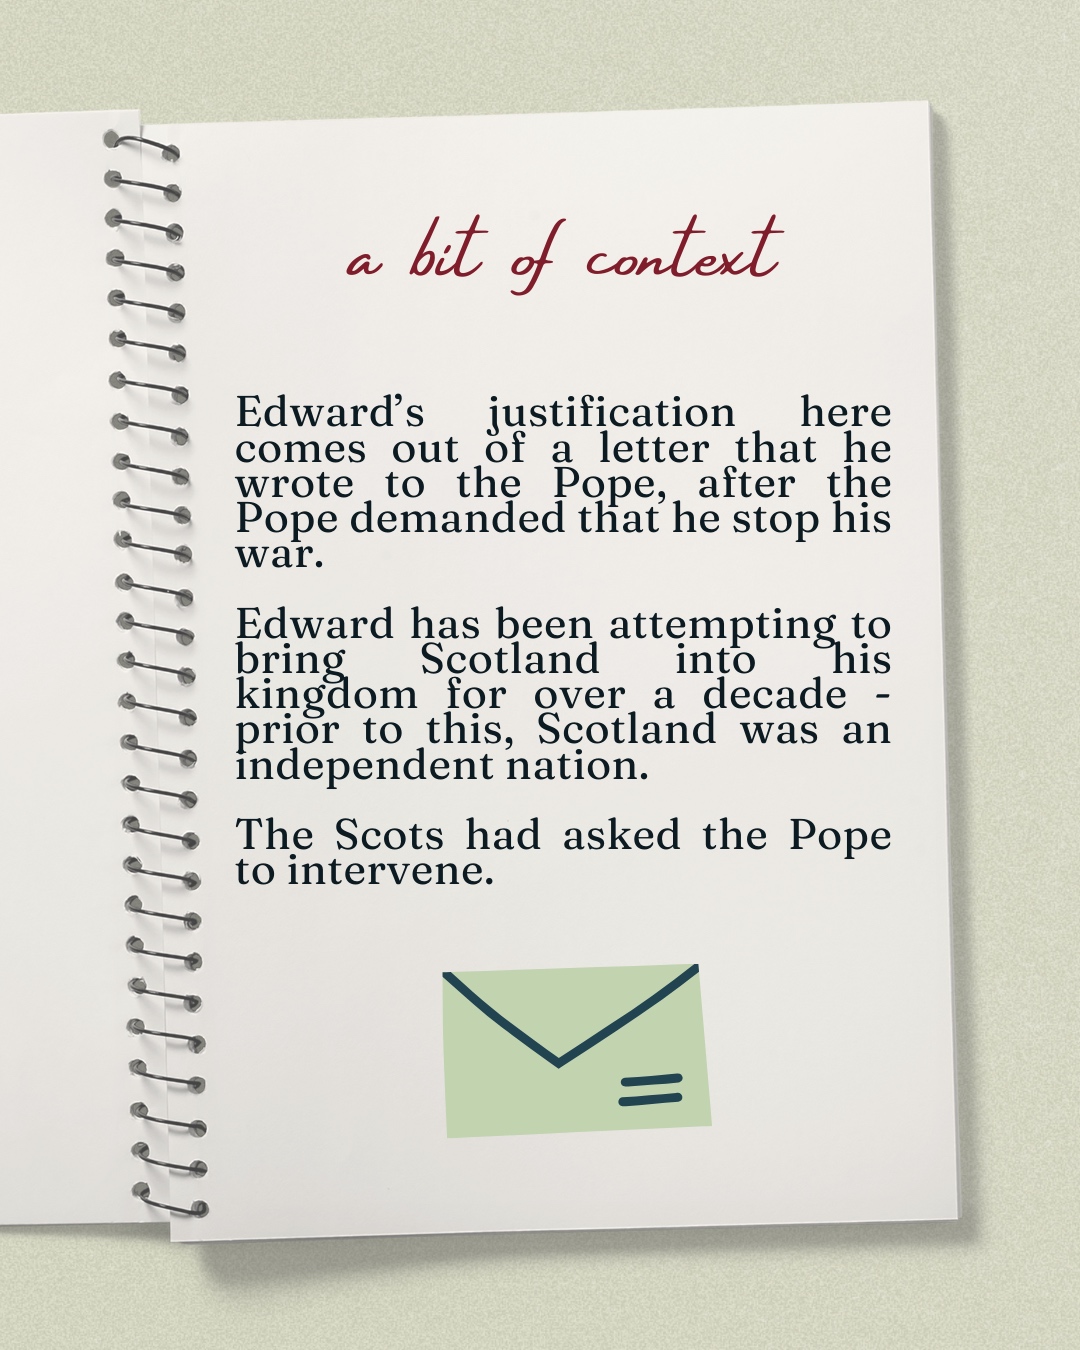 a bit of context
Edward’s justification here
comes out of a letter that he
wrote to the Pope, after the
Pope demanded that he stop his
war.
Edward has been attempting to
bring Scotland into his
kingdom for over a decade -
prior to this, Scotland was an
independent nation.
The Scots had asked the Pope
to intervene.